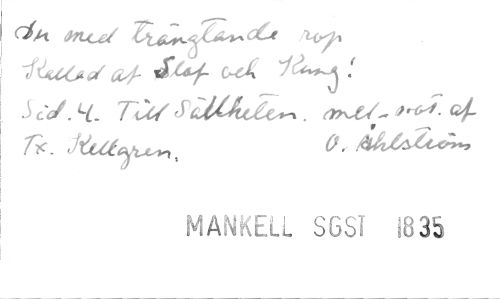 Du med trängtande rop
Kallad af Slaf och Kung!
Sid. 4. Till Sällheten. mel-not. af
Tx. Kellgren. O. Åhlström
MANKELL SGST 1835